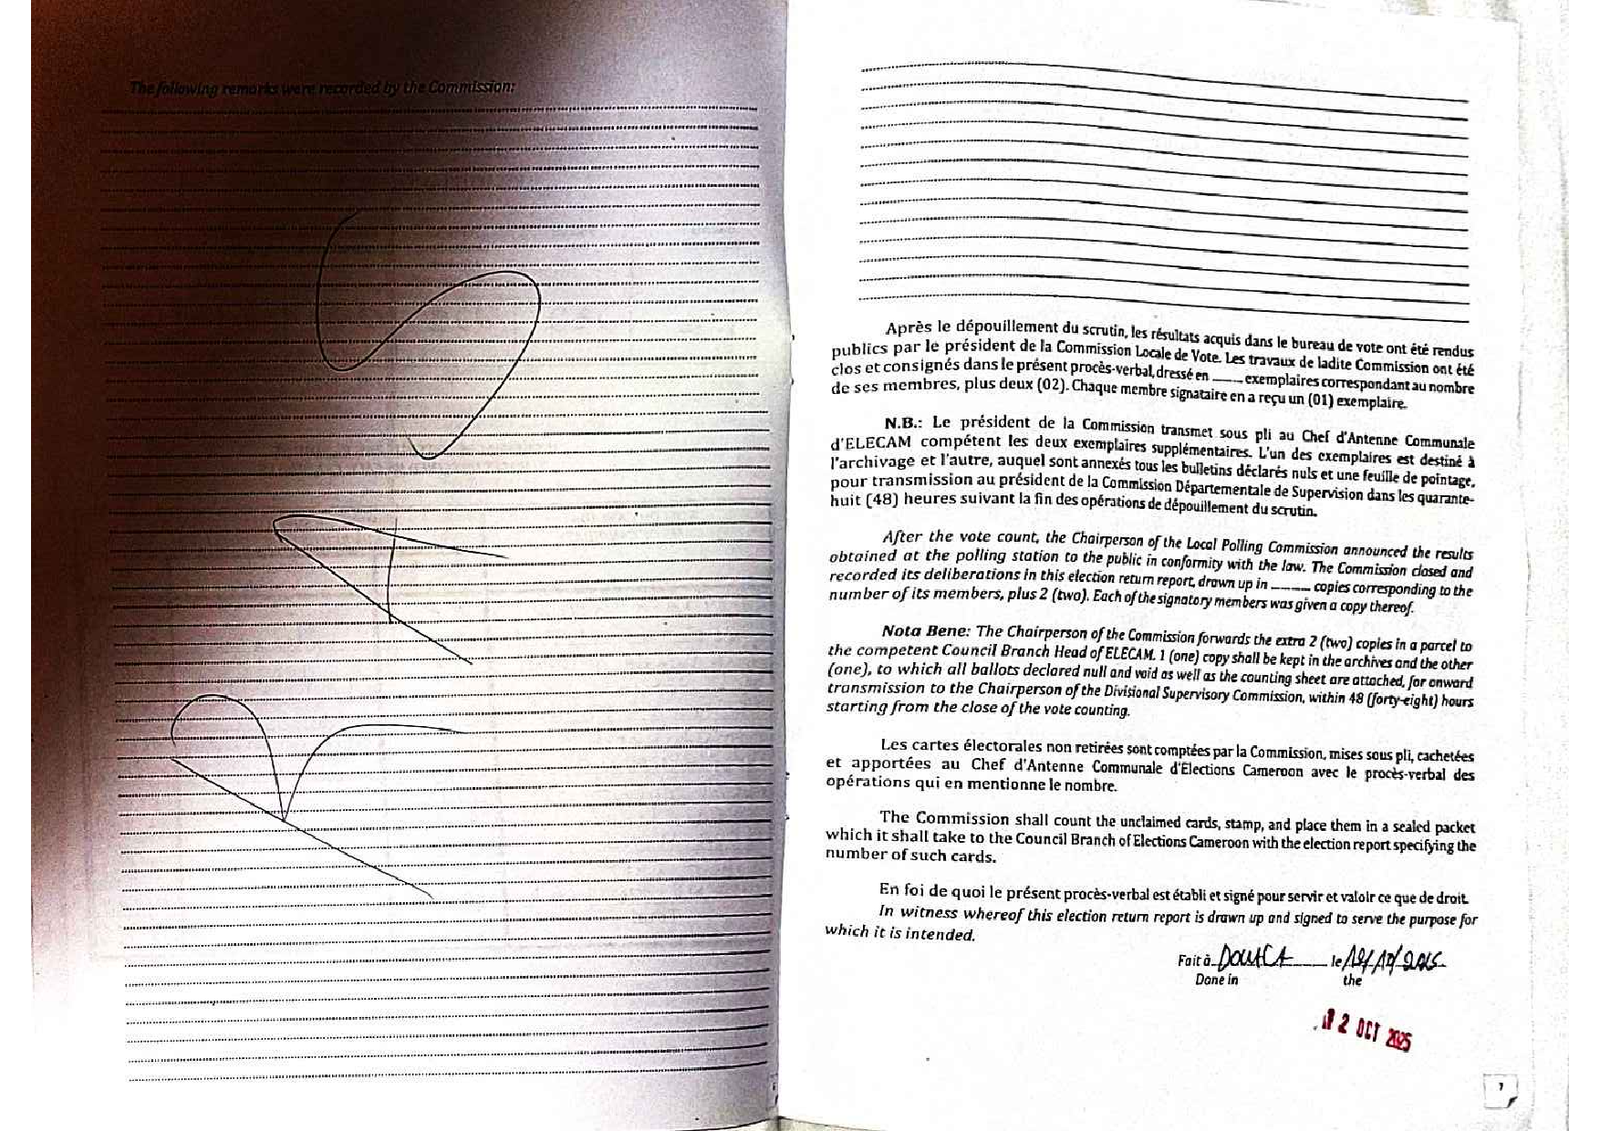 The following remarks were recorded by the Commission:
Après le dépouillement du scrutin, les résultats acquis dans le bureau de vote ont été rendus
publics par le président de la Commission Locale de Vote. Les travaux de ladite Commission ont été
clos et consignés dans le présent procès-verbal, dressé en _____ exemplaires correspondant au nombre
de ses membres, plus deux (02). Chaque membre signataire en a reçu un (01) exemplaire.
N.B.: Le président de la Commission transmet sous pli au Chef d'Antenne Communale
d'ELECAM compétent les deux exemplaires supplémentaires. L'un des exemplaires est destiné à
l'archivage et l'autre, auquel sont annexés tous les bulletins déclarés nuls et une feuille de pointage,
pour transmission au président de la Commission Départementale de Supervision dans les quarante-
huit (48) heures suivant la fin des opérations de dépouillement du scrutin.
After the vote count, the Chairperson of the Local Polling Commission announced the results
obtained at the polling station to the public in conformity with the law. The Commission closed and
recorded its deliberations in this election return report, drawn up in _____ copies corresponding to the
number of its members, plus 2 (two). Each of the signatory members was given a copy thereof.
Nota Bene: The Chairperson of the Commission forwards the extra 2 (two) copies in a parcel to
the competent Council Branch Head of ELECAM. 1 (one) copy shall be kept in the archives and the other
(one), to which all ballots declared null and void as well as the counting sheet are attached, for onward
transmission to the Chairperson of the Divisional Supervisory Commission, within 48 (forty-eight) hours
starting from the close of the vote counting.
Les cartes électorales non retirées sont comptées par la Commission, mises sous pli, cachetées
et apportées au Chef d'Antenne Communale d'Elections Cameroon avec le procès-verbal des
opérations qui en mentionne le nombre.
The Commission shall count the unclaimed cards, stamp, and place them in a sealed packet
which it shall take to the Council Branch of Elections Cameroon with the election report specifying the
number of such cards.
En foi de quoi le présent procès-verbal est établi et signé pour servir et valoir ce que de droit.
In witness whereof this election return report is drawn up and signed to serve the purpose for
which it is intended.
Fait à le
Done in the
2 OCT 2025